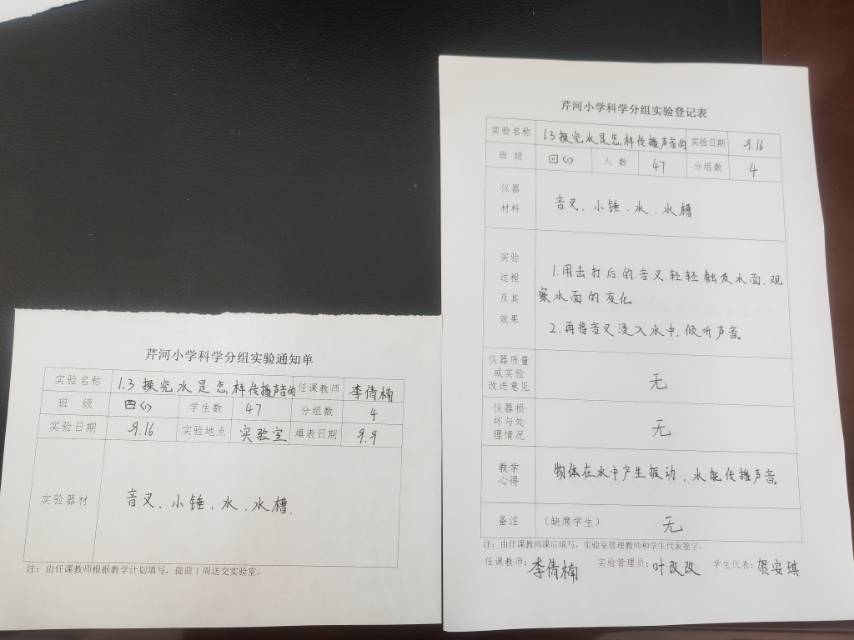 芹河小学科学分组实验通知单
实验名称 1.3探究水是怎样传播声音的 任课教师 李倩楠
班 级 四(1) 学生数 47 分组数 4
实验日期 9.16 实验地点 实验室 填表日期 9.9
实验器材 音叉、小锤、水、水槽.
注：由任课教师根据教学计划填写，提前1周送交实验室。
芹河小学科学分组实验登记表
实验名称 1.3探究水是怎样传播声音的 实验日期 9.16
班 级 四(1) 人 数 47 分组数 4
仪器
材料
音叉、小锤、水、水槽
实验
过程
及其
效果
1.用击打后的音叉轻轻触及水面,观
察水面的变化.
2.再将音叉浸入水中,倾听声音。
仪器质量
或实验
改进意见
无
仪器损
坏与处
理情况
无
教学
心得
物体在水中产生振动,水能传播声音
备注 (缺席学生) 无
注：由任课教师课后填写，实验室管理教师和学生代表签字。
任课教师：李倩楠 实验管理员：叶改改 学生代表：贺安琪